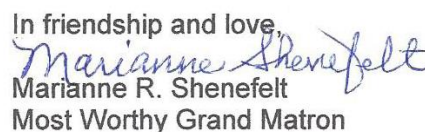 In friendship and love,
Marianne Shenefelt
Marianne R. Shenefelt
Most Worthy Grand Matron